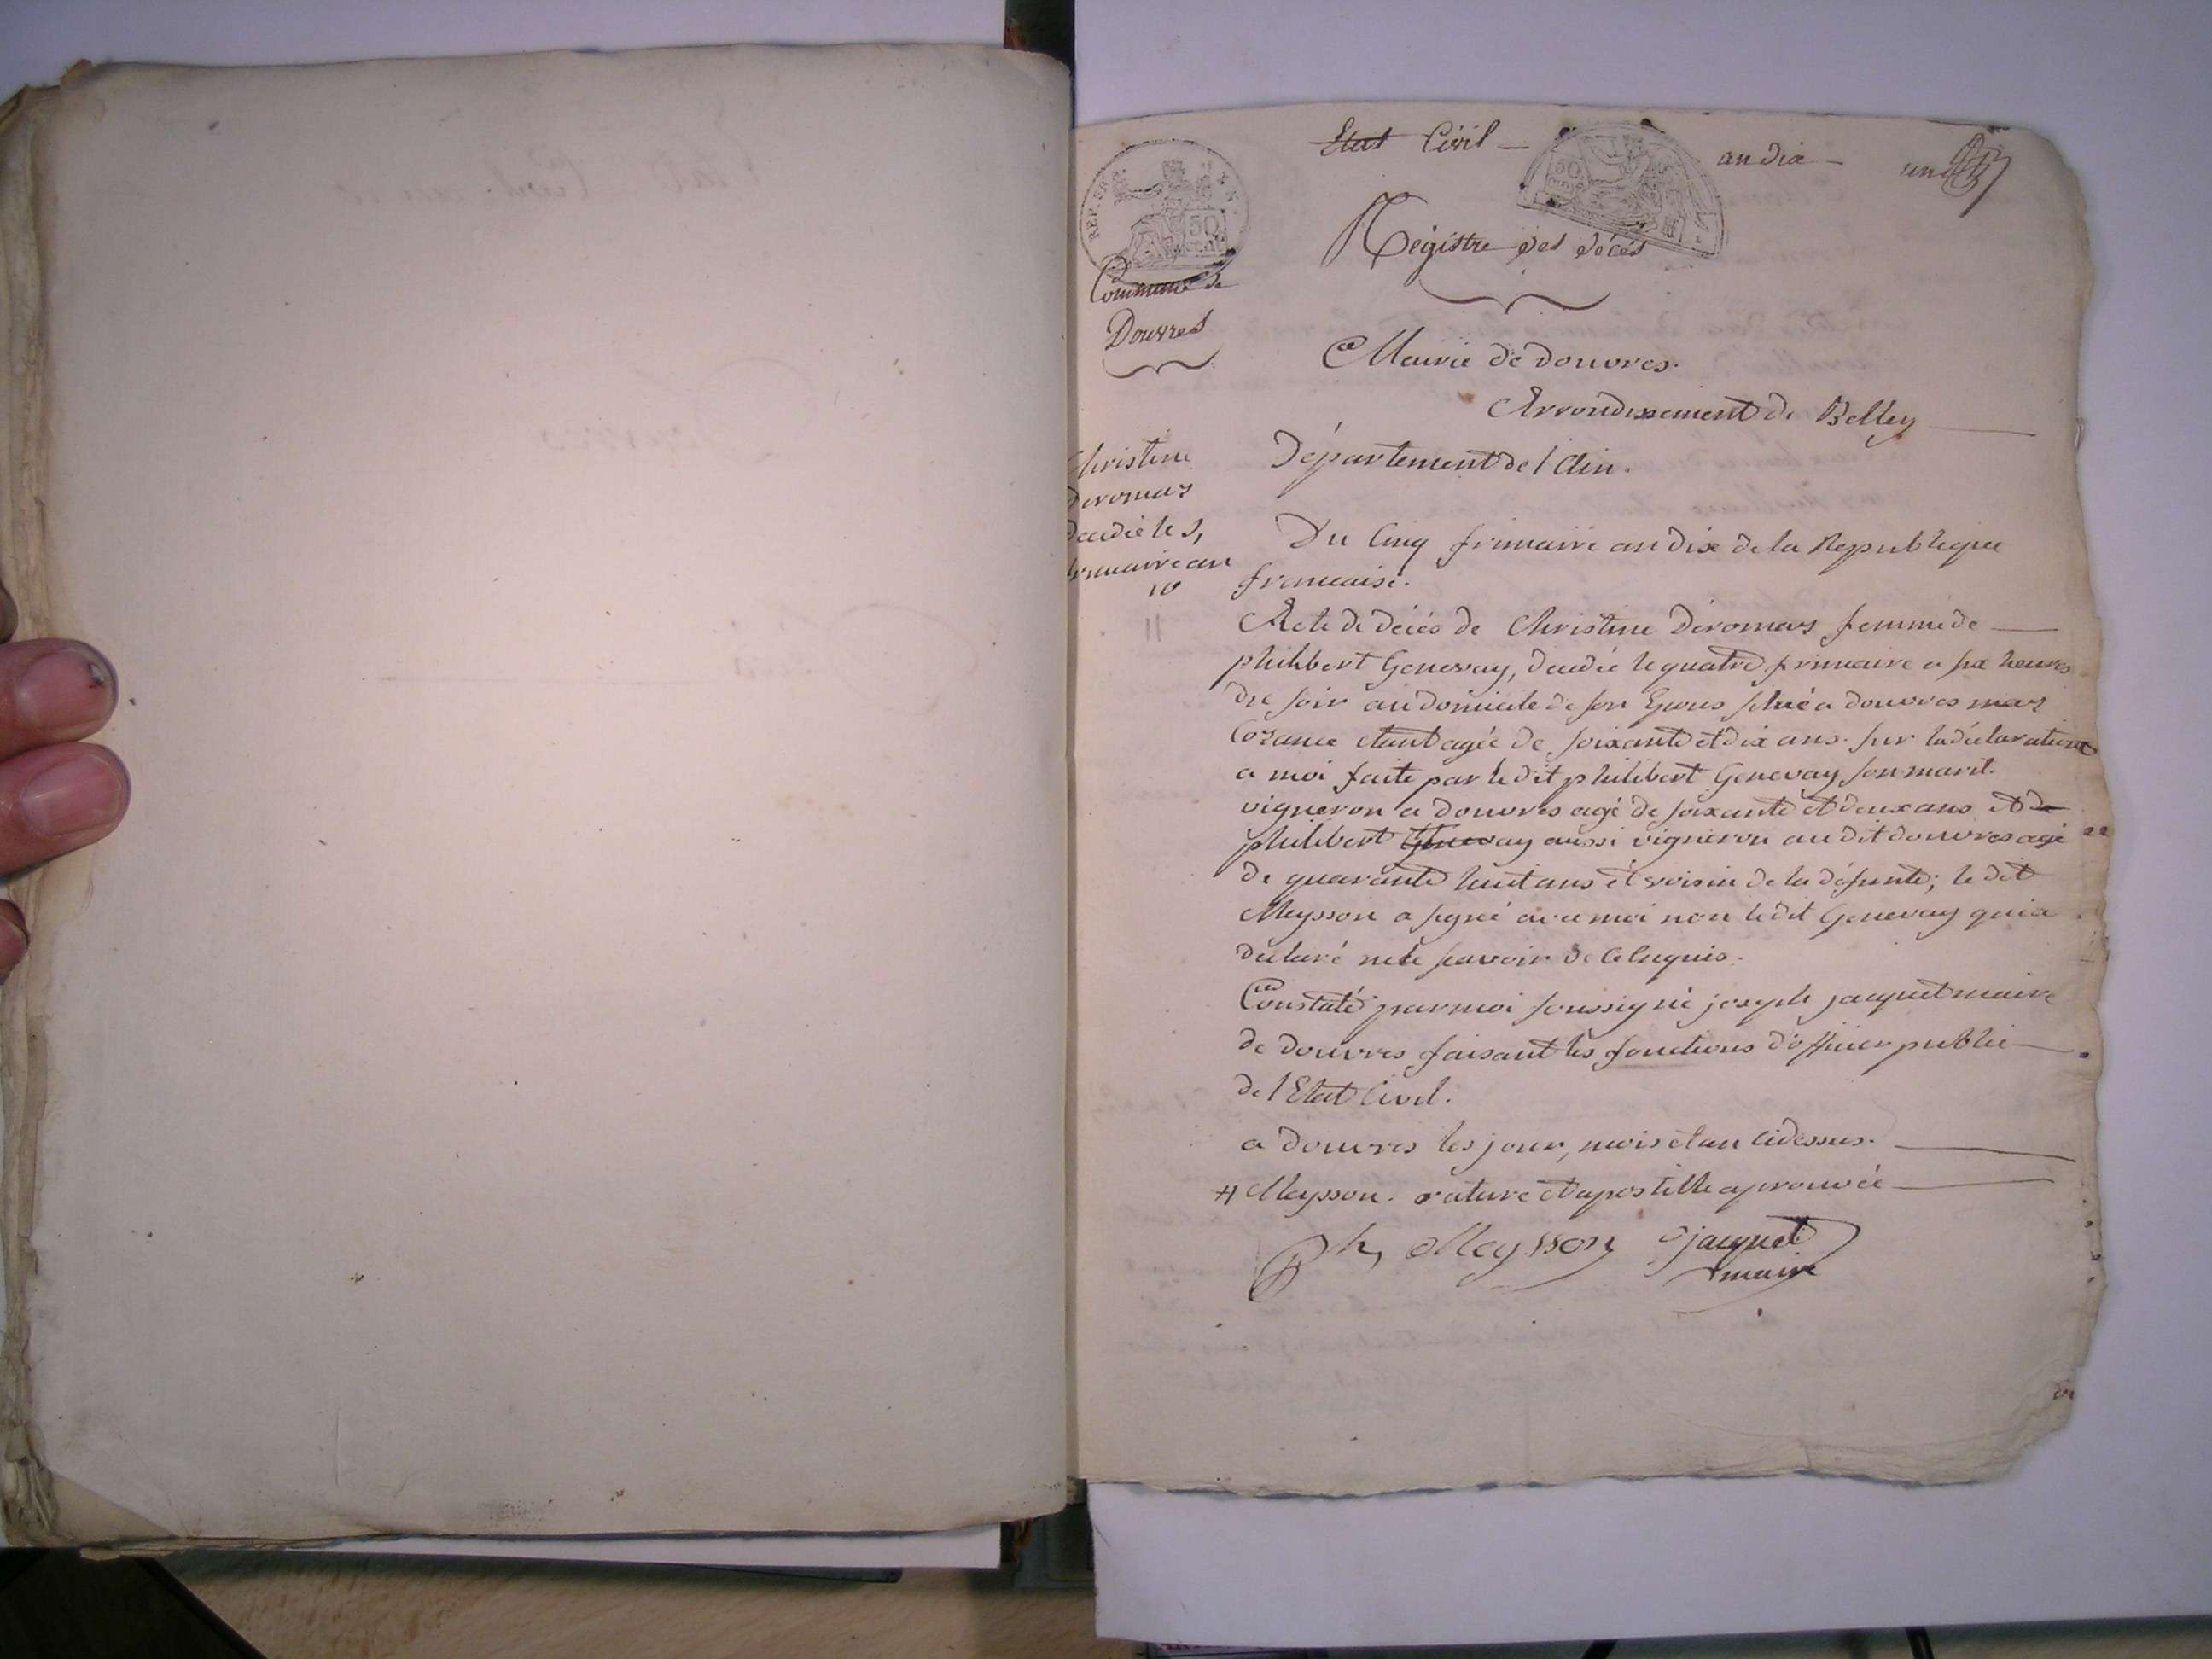 Etat Civil — an dix — un
REP. FRA.
50 cent.
Registre des décès
Commune de
Douvres
Mairie de douvres.
Arrondissement de Belley
Département de l'Ain.
Christine
Deromas
decedée le 5,
frimaire an
10
Du Cinq frimaire an dix de la Republique
francaise.
Acte de décés de Christine Déromas femme de
philibert Genevay, decedée le quatre frimaire a six heures
du soir au domicile de son Epous situé a douvres mas
Cozance etant agée de soixante et dix ans. sur la déclaration
a moi faite par le dit philibert Genevay son mari.
vigneron a douvres agé de soixante et deux ans et de
philibert Genevay aussi vigneron au dit douvres agé
de quarante huit ans et voisin de la défunte; le dit
Meysson a signé avec moi non le dit Genevay qui a
declaré ne le savoir de ce enquis.
Constaté par moi soussigné joseph jacquet maire
de douvres faisant les fonctions d'officier public
de l'Etat Civil.
a douvres les jour, mois et an cidessus.
# Meysson. rature et apostille aprouvée
Ph, Meysson Jacquet
maire